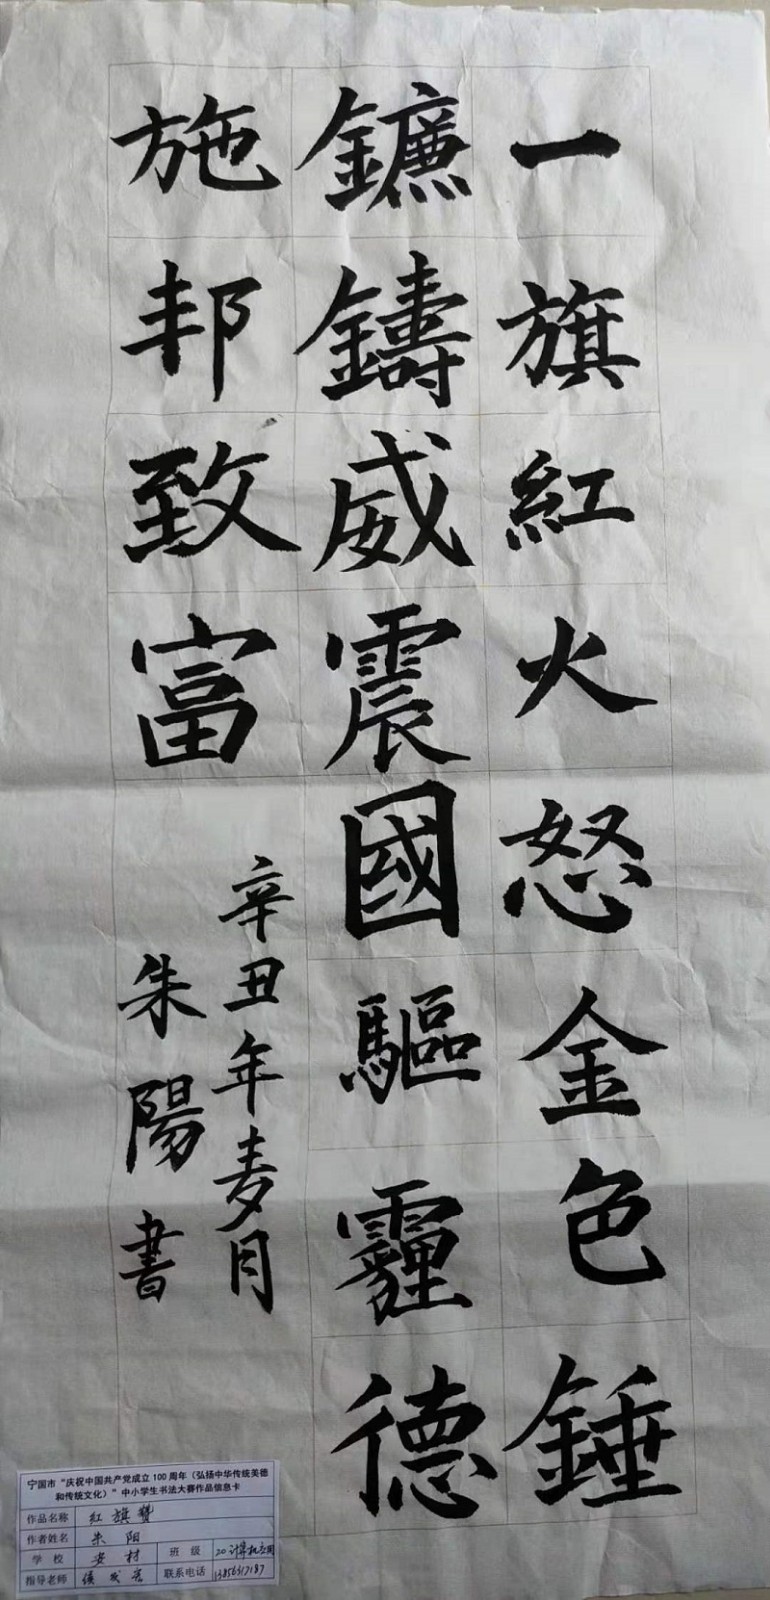 一旗紅火怒金色錘
鑣鑄威震國驅霾德
施邦致富
辛丑年麦月
朱陽書
宁国市“庆祝中国共产党成立100周年（弘扬中华传统美德
和传统文化）”中小学生书法大赛作品信息卡
作品名称 红旗赞
作者姓名 朱阳
学校 安材 班级 20计算机应用
指导老师 联系电话 13856317187